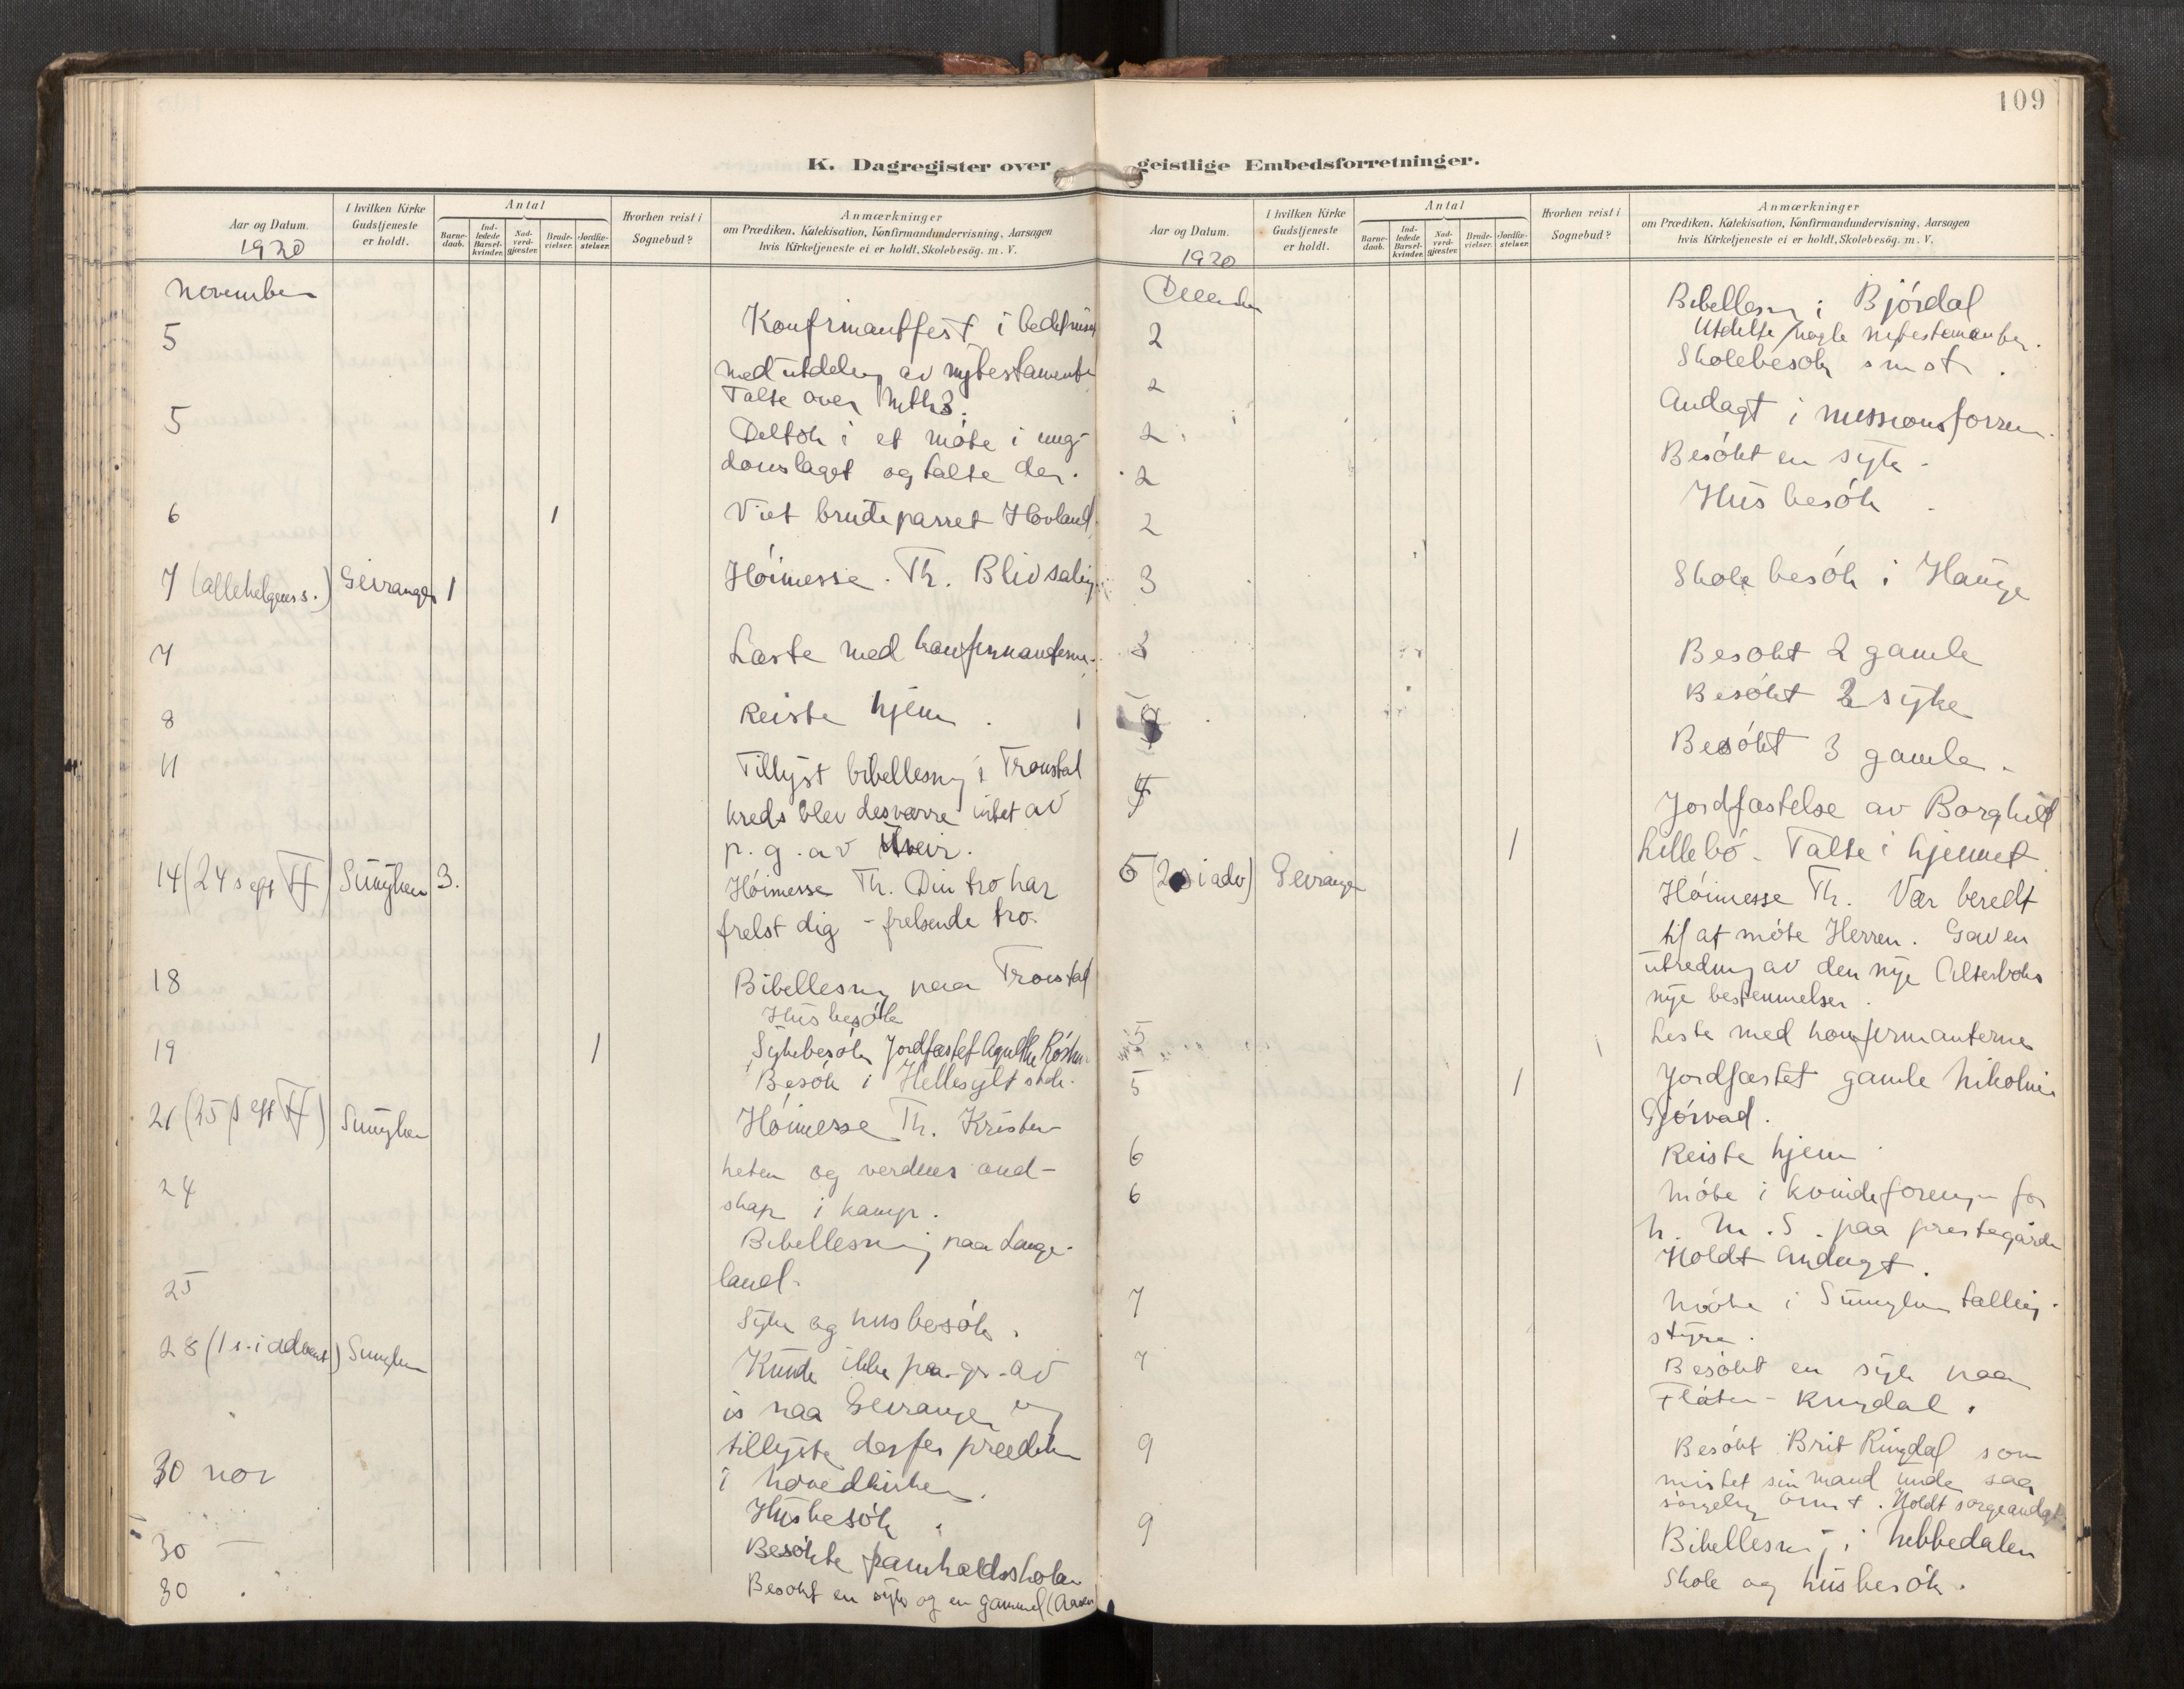 109
K. Dagregister over geistlige Embedsforretninger.
Aar og Datum.
1920
I hvilken Kirke Gudstjeneste er holdt.
Antal
Barne-daab.
Ind-ledede Barsel-kvinder.
Nad-verd-gjæster.
Brude-vielser.
Jordfæ-stelser.
Hvorhen reist i Sognebud?
Anmærkninger
om Prædiken, Katekisation, Konfirmandundervisning, Aarsagen
hvis Kirketjeneste ei er holdt, Skolebesög. m. V.
November
5 Konfirmantfest i bedehuset
med utdeling av nytestamente
Talte over Mth 3.
5 Deltok i et möte i ung-
domslaget og talte der.
6 1 Viet brudeparret Hovland.
7 (allehelgens s.) Geiranger 1 Höimesse. Th. Bliv salig
7 Læste med konfirmanterne.
8 Reiste hjem. 1
11 Tillyst bibellesning i Tronstad
kreds blev desværre intet av
p. g. av uveir.
14 (24 s eft ) Sunylven 3. Höimesse Th. Din tro har
frelst dig - frelsende tro.
18 Bibellesning paa Tronstad
Husbesök
19 1 Sykebesök Jordfæstet Agnethe
Besök i Hellesylt skole.
21 (25 s eft ) Sunylven Höimesse Th. Kristen-
heten og verdens aand-
24 skap i kamp.
Bibellesning paa Lange-
land.
25 Syke og husbesök.
28 (1 s. i advent) Sunylven Kunde ikke pa. gr. av
is naa Geiranger og
tillyste derfor præken
30 nov i hovedkirken.
Husbesök.
30 — Besökte framhaldsskolen
30 Besökt en syk og en gammel (Aasen
Aar og Datum.
1920
I hvilken Kirke Gudstjeneste er holdt.
Antal
Barne-daab.
Ind-ledede Barsel-kvinder.
Nad-verd-gjæster.
Brude-vielser.
Jordfæ-stelser.
Hvorhen reist i Sognebud?
Anmærkninger
om Prædiken, Katekisation, Konfirmandundervisning, Aarsagen
hvis Kirketjeneste ei er holdt, Skolebesög. m. V.
December
Bibellesning i Björdal
2 Utdelte nogle nytestamenter.
Skolebesök smst.
2 Andagt i missionsforen.
2 Besökt en syk.
2 Husbesök.
2
3 Skolebesök i Hauge
3 Besökt 2 gamle
Besökt 2 syke
4 Besökt 3 gamle.
4 Jordfæstelse av Borghild
1 Lillebö. Talte i hjemmet
5 (2 s i adv) Geiranger Höimesse Th. Vær beredt
til at möte Herren. Gav en
utredning av den nye Alterboks
nye bestemmelser.
5 Leste med konfirmanterne
5 1 Jordfæstet gamle Nikoline
Gjörvad.
6 Reiste hjem
6 Möte i kvindeforening for
N. M. S. paa prestegården
Holdt andagt.
7 Möte i Sunylven fattig-
styre.
7 Besökt en syk paa
Flåten - Ringdal.
9 Besökt Brit Ringdal som
mistet sin mand under saa
sörgelig omst. Holdt sorgeandagt
9 Bibellesning i Nebbedalen
Skole og husbesök.